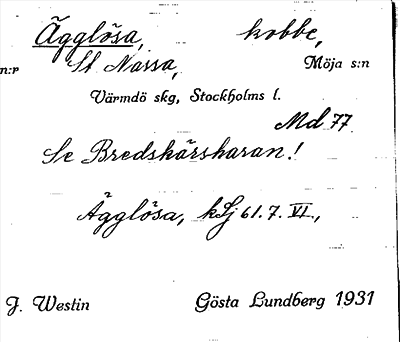 Ägglösa, kobbe,
n:r St Nassa, Möja s:n
Värmdö skg, Stockholms l.
Md 77
Se Bredskärsharan!
Ägglösa, kSj 61.7. VI.,
J. Westin Gösta Lundberg 1931